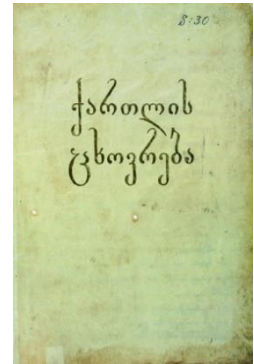 8:30
ქართლის
ცხოვრება